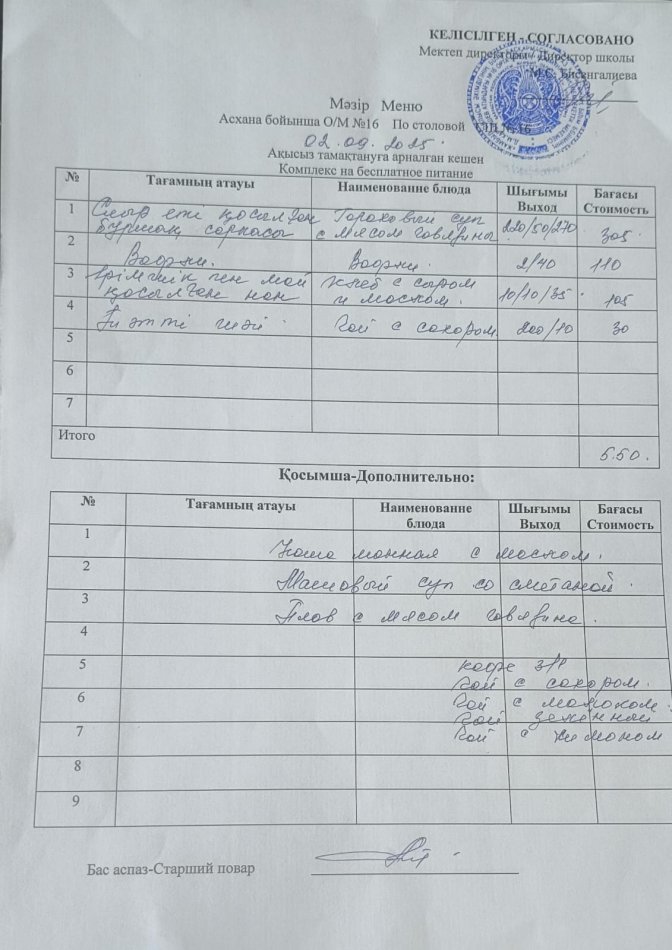 КЕЛІСІЛГЕН - СОГЛАСОВАНО
Мектеп директоры / Директор школы
М.С. Бисенгалиева
Мәзір Меню
Асхана бойынша О/М №16 По столовой СШ № 16
02.09.2025.
Ақысыз тамақтануға арналған кешен
Комплекс на бесплатное питание
№ Тағамның атауы Наименование блюда Шығымы Выход Бағасы Стоимость
1 Сиыр еті қосылған бұршақ сорпасы Гороховый суп с мясом говядина 220/50/270 305
2 Воорти. Воорти. 2/40 110
3 Ірімшік пен май қосылған нан Хлеб с сыром и маслом. 10/10/35 105
4 Тәтті шәй Чай с сахаром. 200/10 30
5
6
7
Итого 550.
Қосымша-Дополнительно:
№ Тағамның атауы Наименование блюда Шығымы Выход Бағасы Стоимость
1 Каша манная с маслом.
2 Машовый суп со сметаной.
3 Плов с мясом говядина.
4
5 кофе 3/1
чай с сахаром.
6 чай с молоком.
чай зеленный
7 чай с лимоном
8
9
Бас аспаз-Старший повар